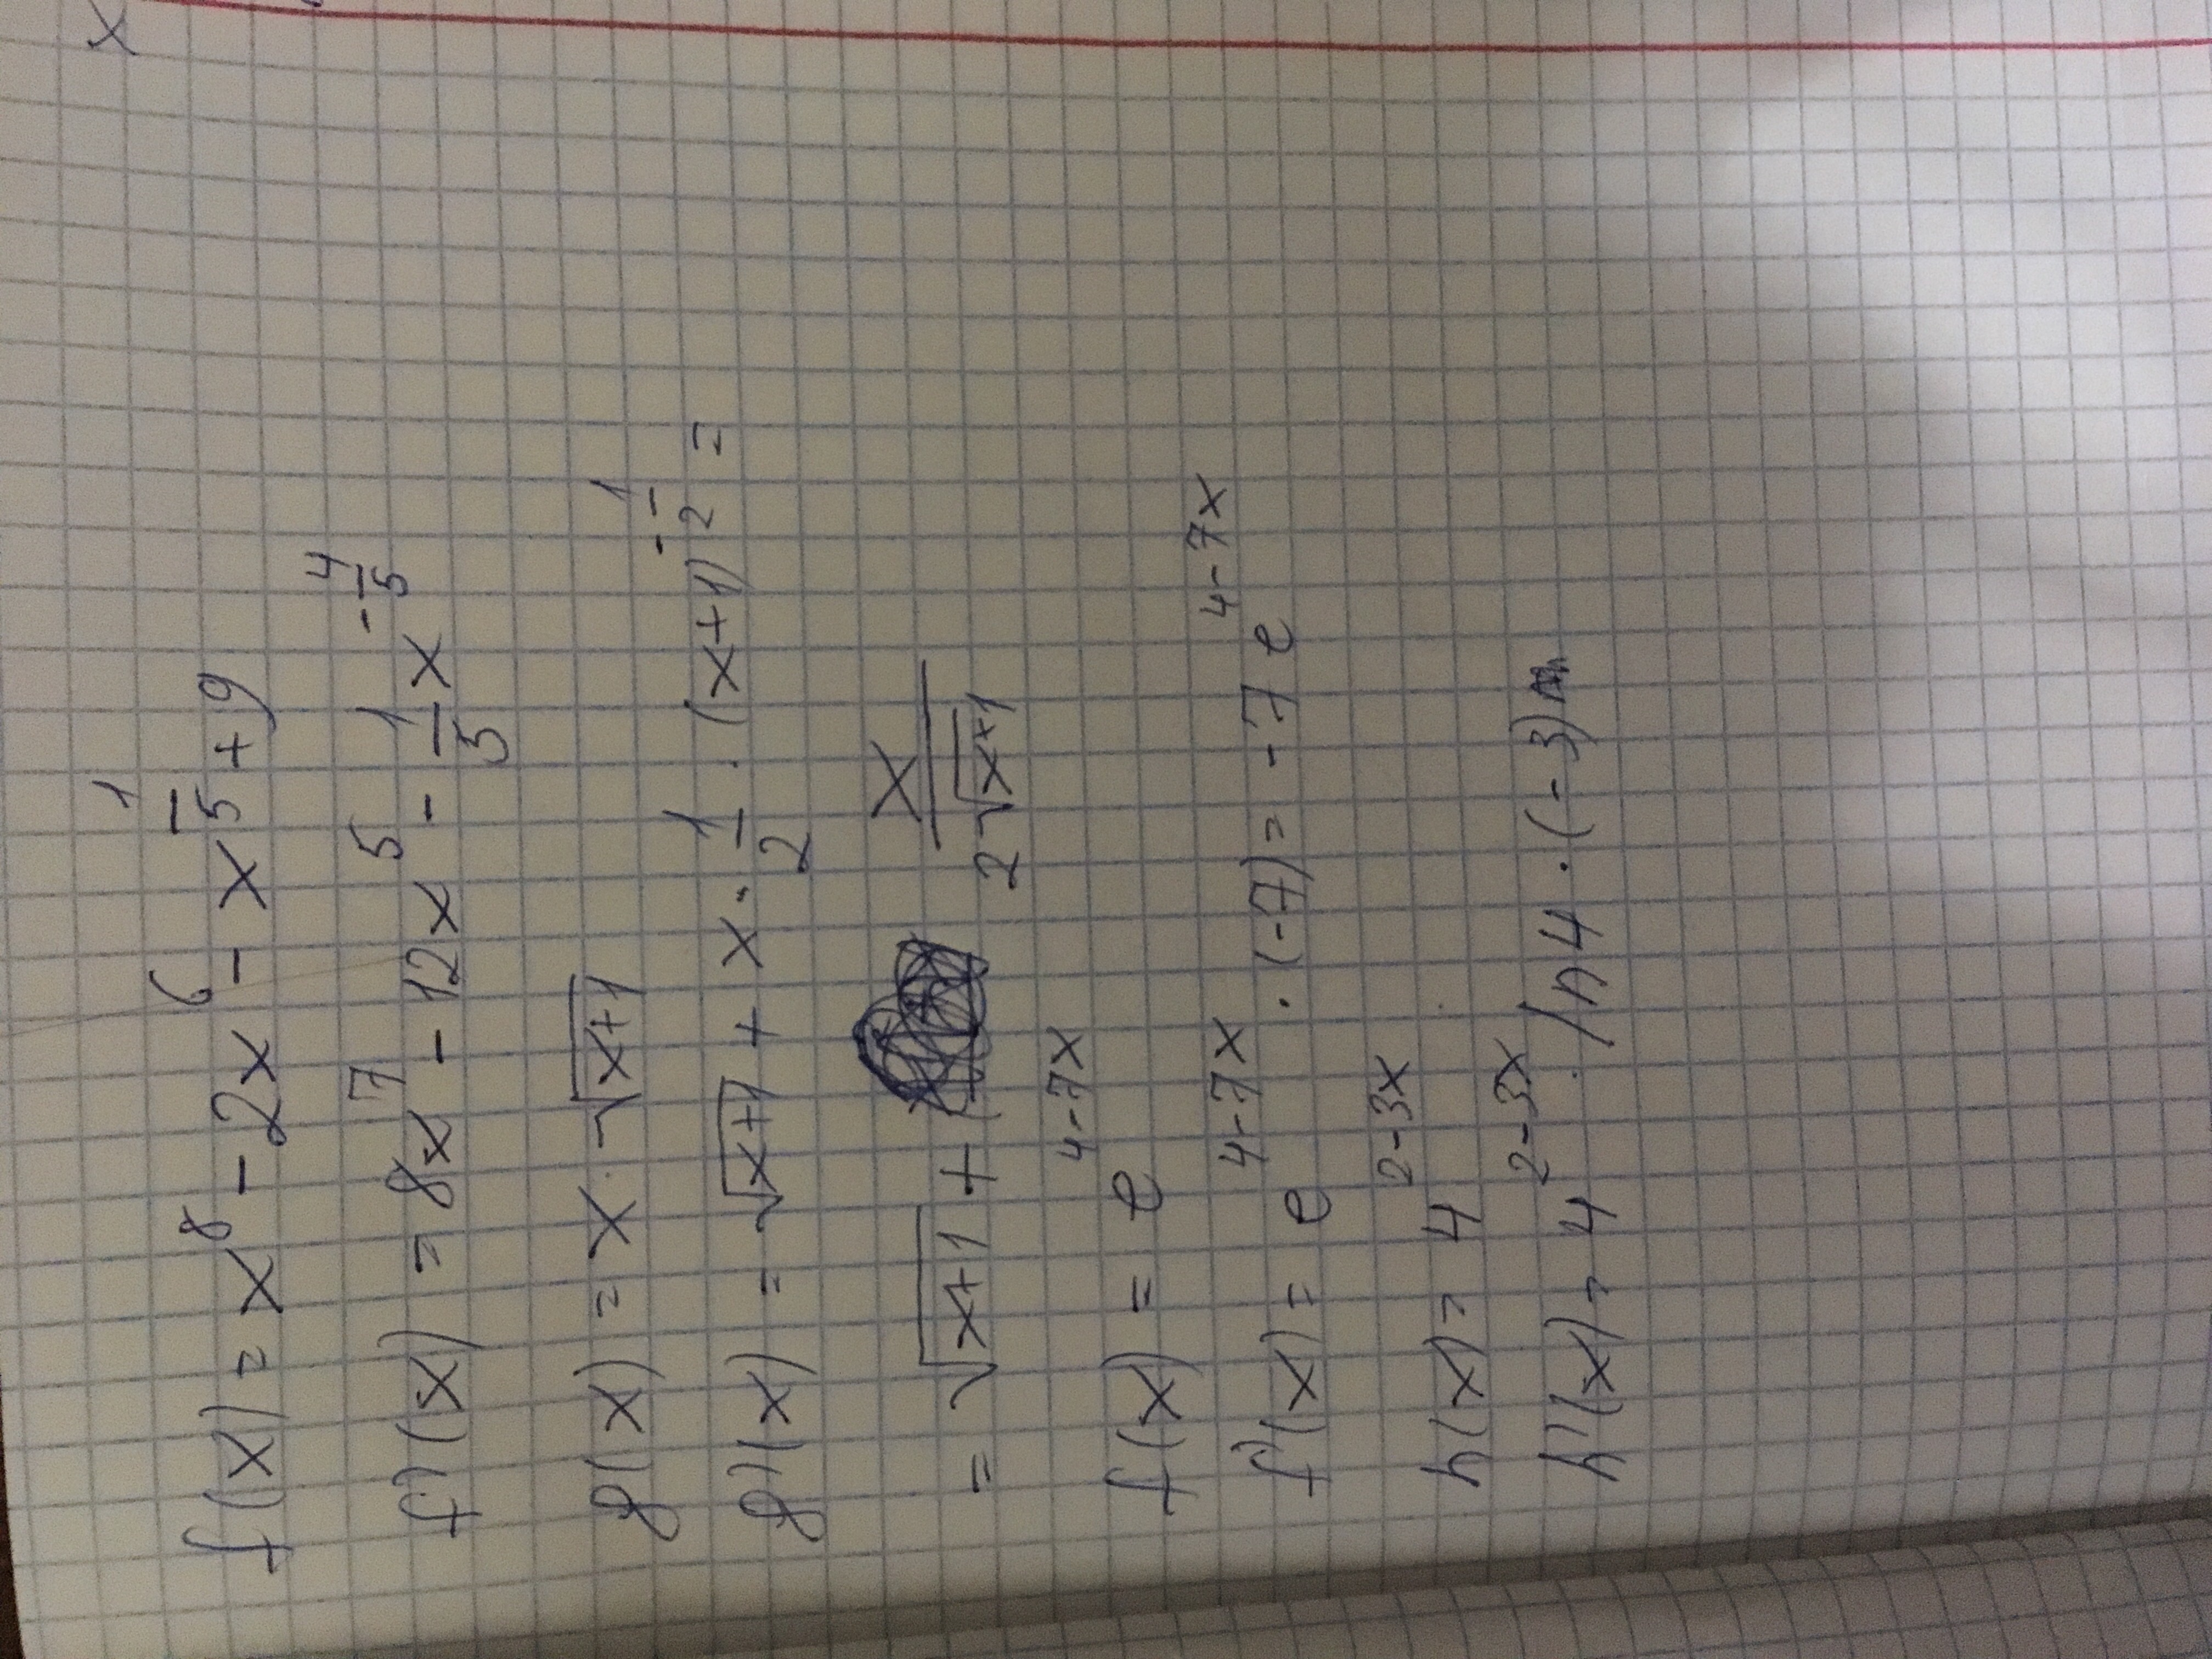 f(x) = x^8 - 2x^6 - x^(1/5) + 9
f'(x) = 8x^7 - 12x^5 - 1/5 x^(-4/5)
g(x) = x · √(x+1)
g'(x) = √(x+1) + x · 1/2 · (x+1)^(-1/2) =
= √(x+1) + x/(2√(x+1))
f(x) = e^(4-7x)
f'(x) = e^(4-7x) · (-7) = -7e^(4-7x)
h(x) = 4^(2-3x)
h'(x) = 4^(2-3x) · ln4 · (-3)